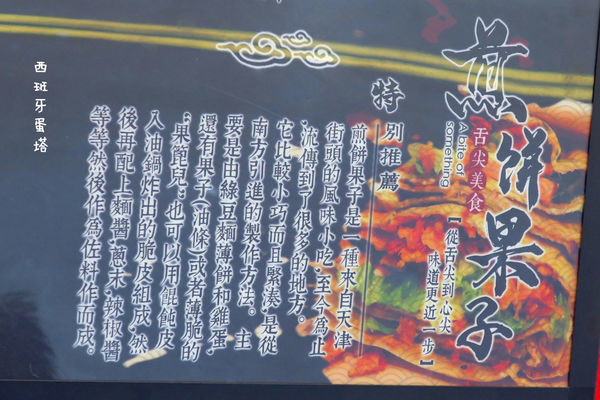 煎餅果子
A bite of
something
舌尖美食
【從舌尖到心尖
味道更近一步】
特別推薦
煎餅果子是一種來自天津
街頭的風味小吃，至今為止
，流傳到了很多的地方。
它比較小巧而且緊湊，是從
南方引進的製作方法。　主
要是由綠豆麵薄餅和雞蛋，
還有果子（油條）或者薄脆的
“果蓖兒”，也可以用餛飩皮
入油鍋炸出的脆皮組成，然
後再配上麵醬，蔥末，辣椒醬
等等，然後作為佐料作而成。
西班牙蛋塔